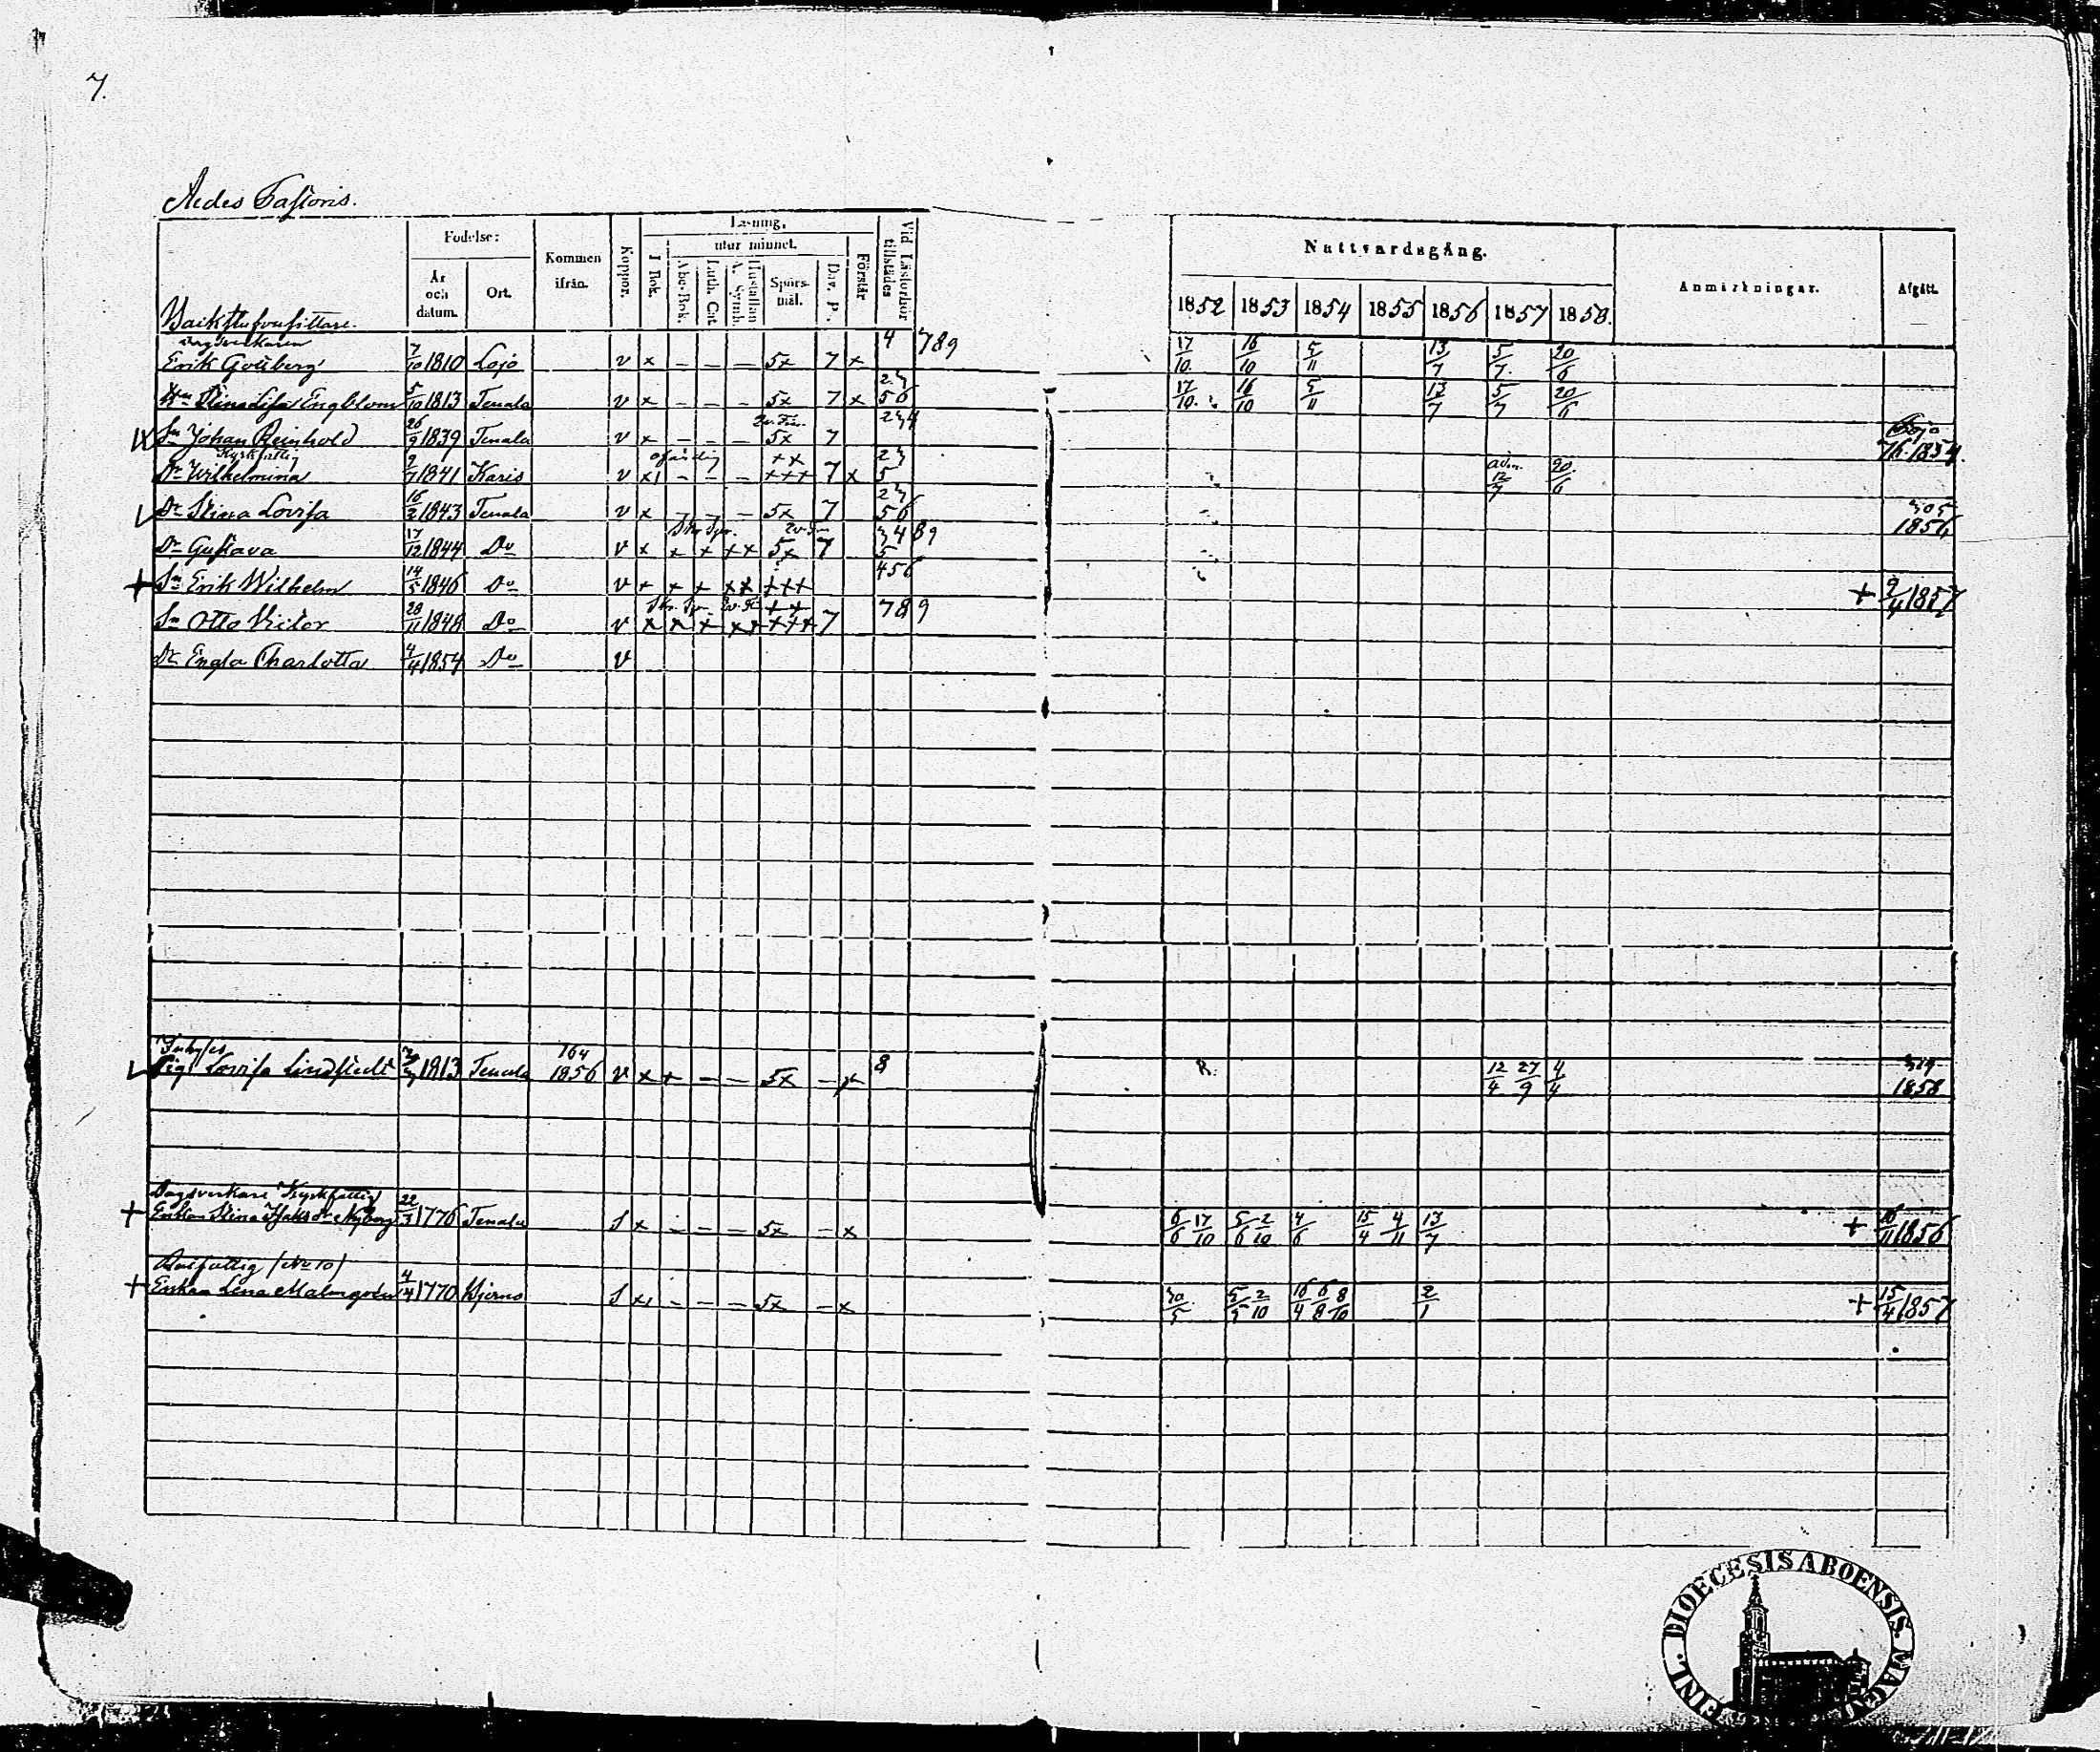 7.
Aedes Pastoris.
Födelse:
År och datum.
Ort.
Kommen ifrån.
Koppor.
Läsning,
I Bok.
utur minnet.
Abc-Bok.
Luth. Cat.
Hustaflan A. Symb.
Spörs-mål.
Dav. P.
Förstår
Vid Läsförhör tillstädes
Nattvardsgång.
1852 1853 1854 1855 1856 1857 1858.
Anmärkningar.
Afgått.
Backstufvusittare.
Dagsverkaren
Erik Godberg 7/10 1810 Lojo v x – – – 5x 7 x 4 789 17/10. 16/10 5/11 13/7 5/7. 20/6
Hn Stina Lisa Engblom 5/10 1813 Tenala v x – – – 5x 7 x 23 56 17/10. 16/10 5/11 13/7 5/7 20/6
Sn Johan Reinhold 26/9 1839 Tenala v x – – – 5x 7 234 1854.
Kyrkfattig
Dr Wilhelmina 9/7 1841 Karis v x – – – ofärdig xx +++ 7 x 23 5 adm. 12/7 20/6
Dr Stina Lovisa 16/2 1843 Tenala v x 5x 7 23 56 305 1856
Dr Gustava 17/12 1844 Do v x x x xx 5x 7 34 89 5
+ Sn Erik Wilhelm 14/5 1846 Do v + + + xx +++ 456 + 9/4 1857
Sn Otto Victor 28/11 1848 Do v x x x xx +++ 7 789
Dr Engla Charlotta 4/4 1854 Do v
Inhyses
Pig. Lovisa Lindstedt 1813 Tenala 164 1856 v x + – – 5x – x 8 12/4 27/9 4/4 319 1858
Dagsverkare Kyrkfattig
+ Enkan Stina Isaksdr Nyberg 22/3 1776 Tenala s x – – – 5x – x 6/6 17/10 5/6 2/10 4/6 15/4 4/11 13/7 + 16/11 1856
Rotfattig (No 10)
+ Enkan Lena Malmqvist 4/4 1770 Bjerno s x – – – 5x – x 30/5 5/5 2/10 16/4 6/8 8/10 2/1 + 15/4 1857
FINL. DIOECESIS ABOENSIS.